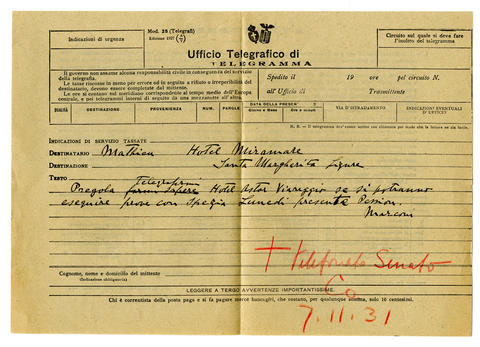 Indicazioni di urgenza
Mod. 25 (Telegrafi)
Edizione 1927
Ufficio Telegrafico di
TELEGRAMMA
Circuito sul quale si deve fare
l'inoltro del telegramma
Il governo non assume alcuna responsabilità civile in conseguenza del servizio
della telegrafia.
Le tasse riscosse in meno per errore od in seguito a rifiuto o irreperibilità del
destinatario, devono essere completate dal mittente.
Le ore si contano sul meridiano corrispondente al tempo medio dell'Europa
centrale, e pei telegrammi interni di seguito da una mezzanotte all'altra.
Spedito il 19 ore pel circuito N.
all'Ufficio di Trasmittente
QUALITÀ DESTINAZIONE PROVENIENZA NUM. PAROLE DATA DELLA PRESENT. VIA D'ISTRADAMENTO INDICAZIONI EVENTUALI
Giorno e Mese Ore e minuti D'UFFICIO
INDICAZIONI DI SERVIZIO TASSATE
DESTINATARIO Mathieu Hotel Miramare
DESTINAZIONE Santa Margherita Ligure
TESTO Telegrafarmi
Pregola Hotel Astor Viareggio se si potranno
eseguire prove con Spezia Lunedi presente Pession.
Marconi
+ telefonato Senato
Cognome, nome e domicilio del mittente
(Indicazione obbligatoria)
7.11.31
LEGGERE A TERGO AVVERTENZE IMPORTANTISSIME.
Chi è correntista della posta paga e si fa pagare mercè bancogiri, che costano, per qualunque somma, solo 10 centesimi.